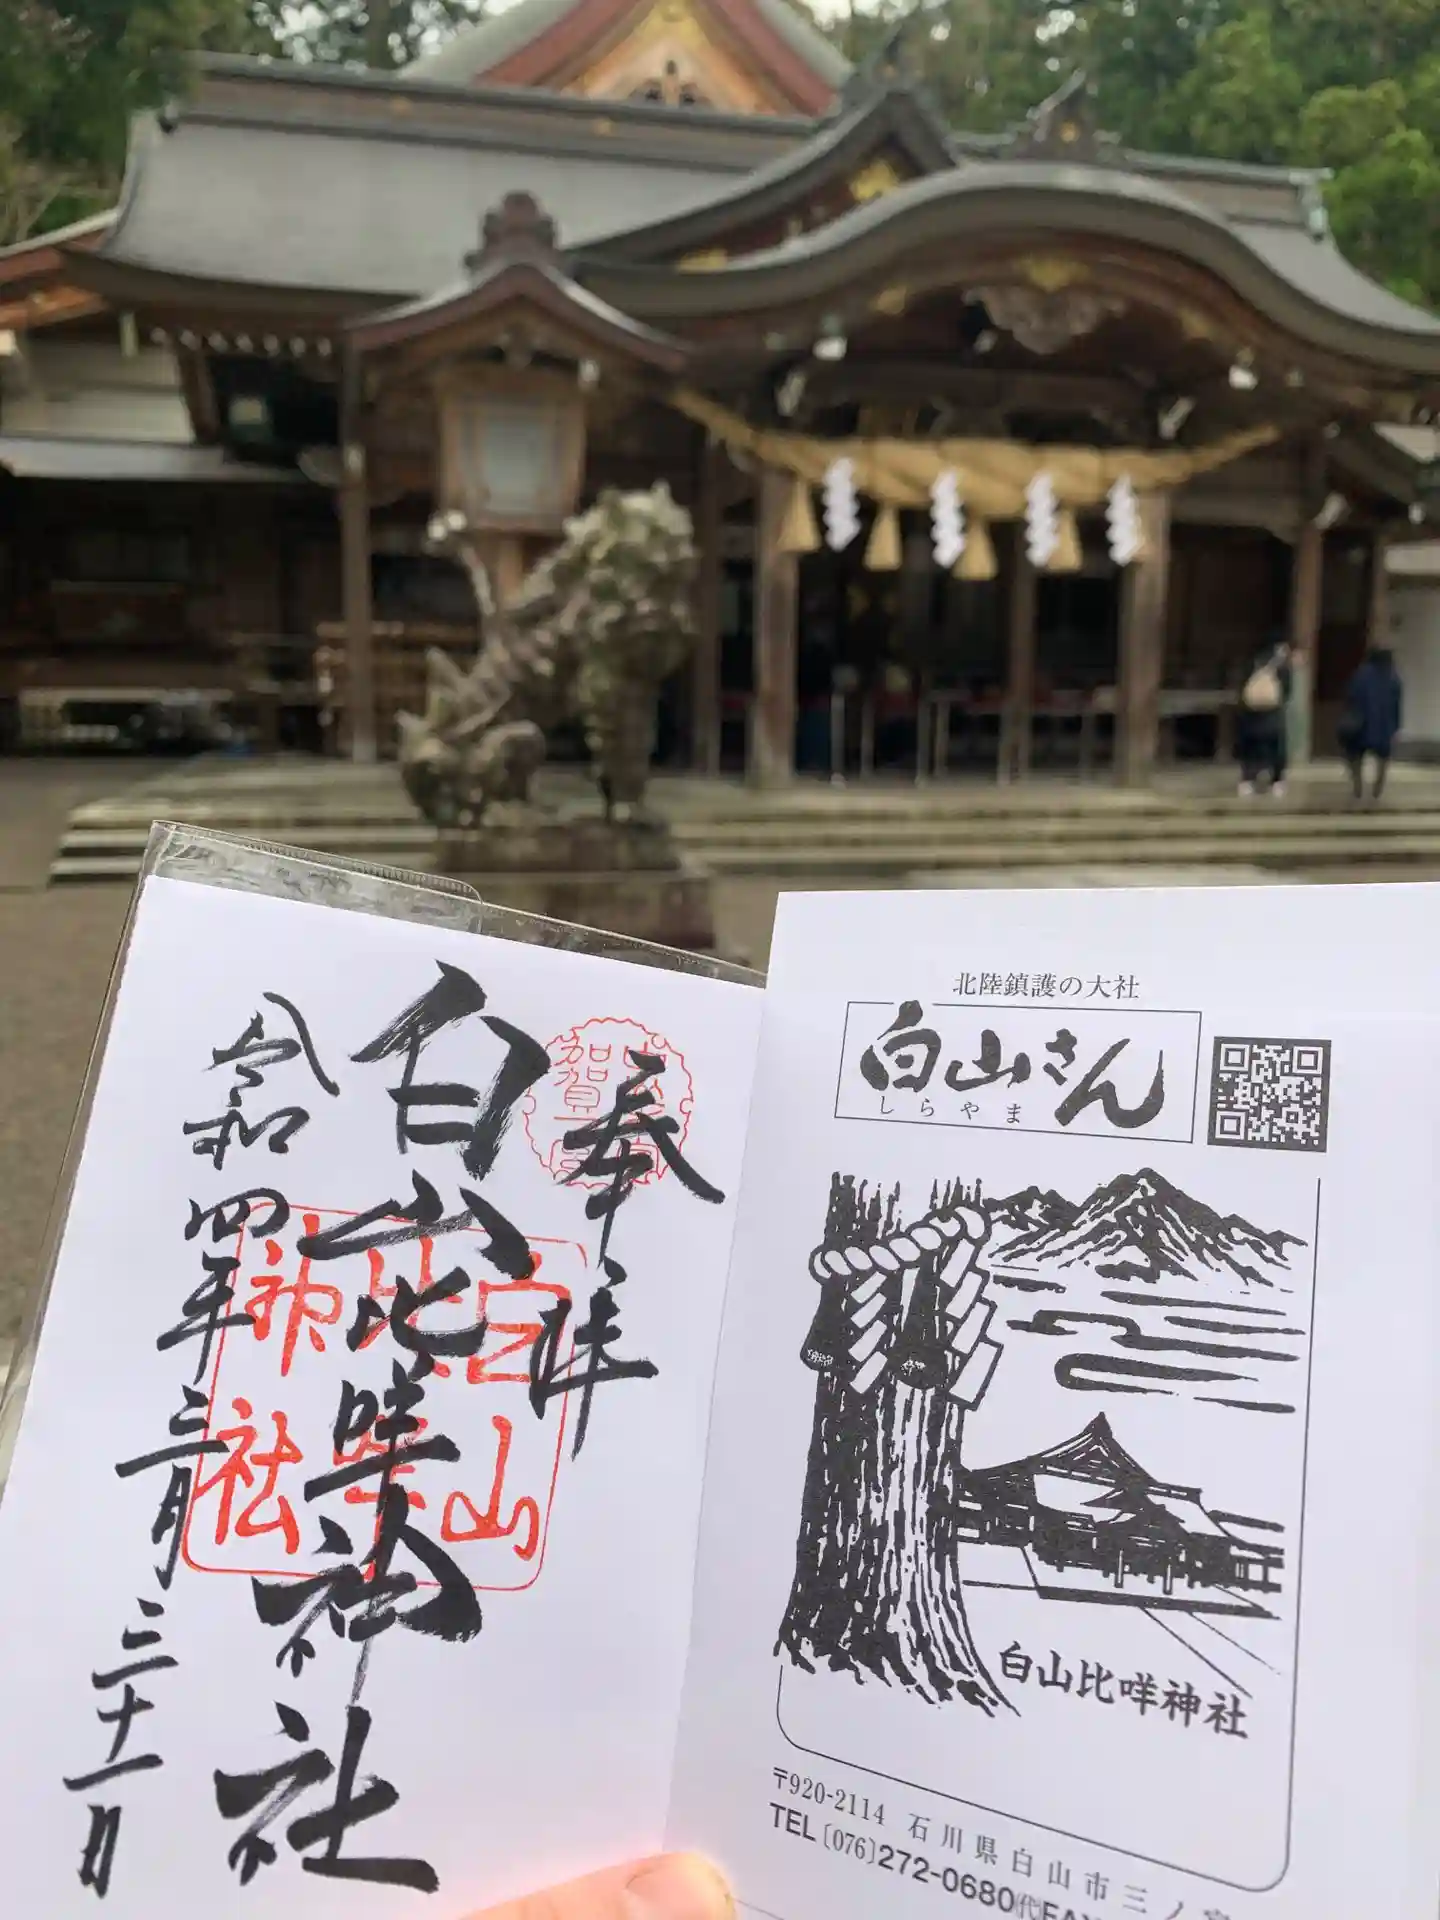 奉拝
白山比咩神社
令和四年三月三十一日
加賀一宮
白山比咩神社
北陸鎮護の大社
白山さん
しらやま
白山比咩神社
〒920-2114 石川県白山市三ノ宮
TEL〔076〕272-0680㈹FAX